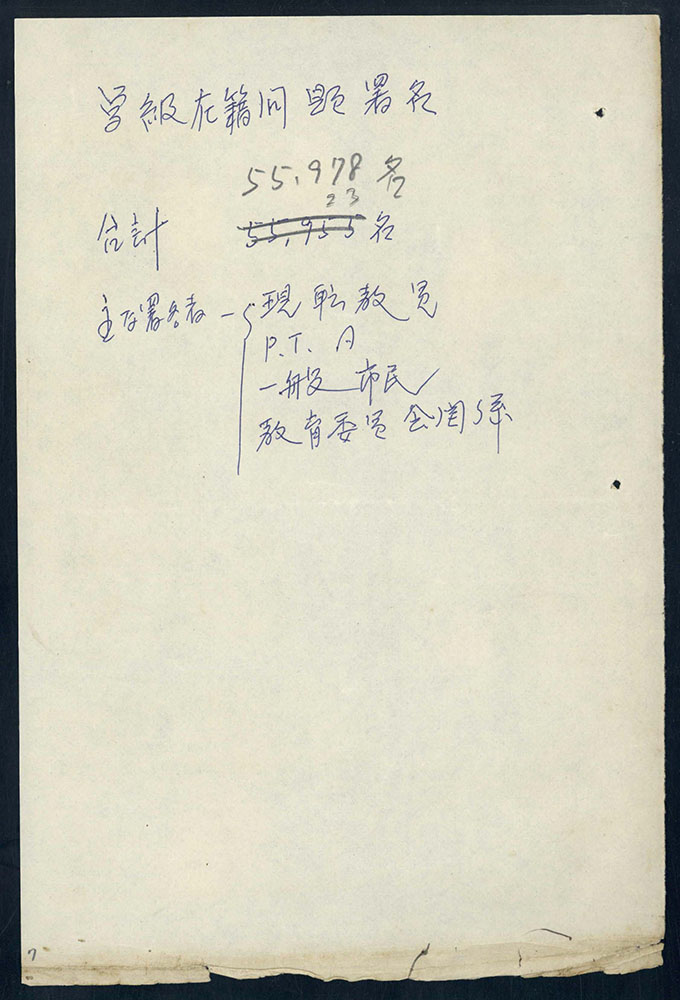 学級在籍问題署名
55,978名
23
合計 55,955名
主な署名者 現転教員
P.T.A
一般市民
教育委員会関係
7